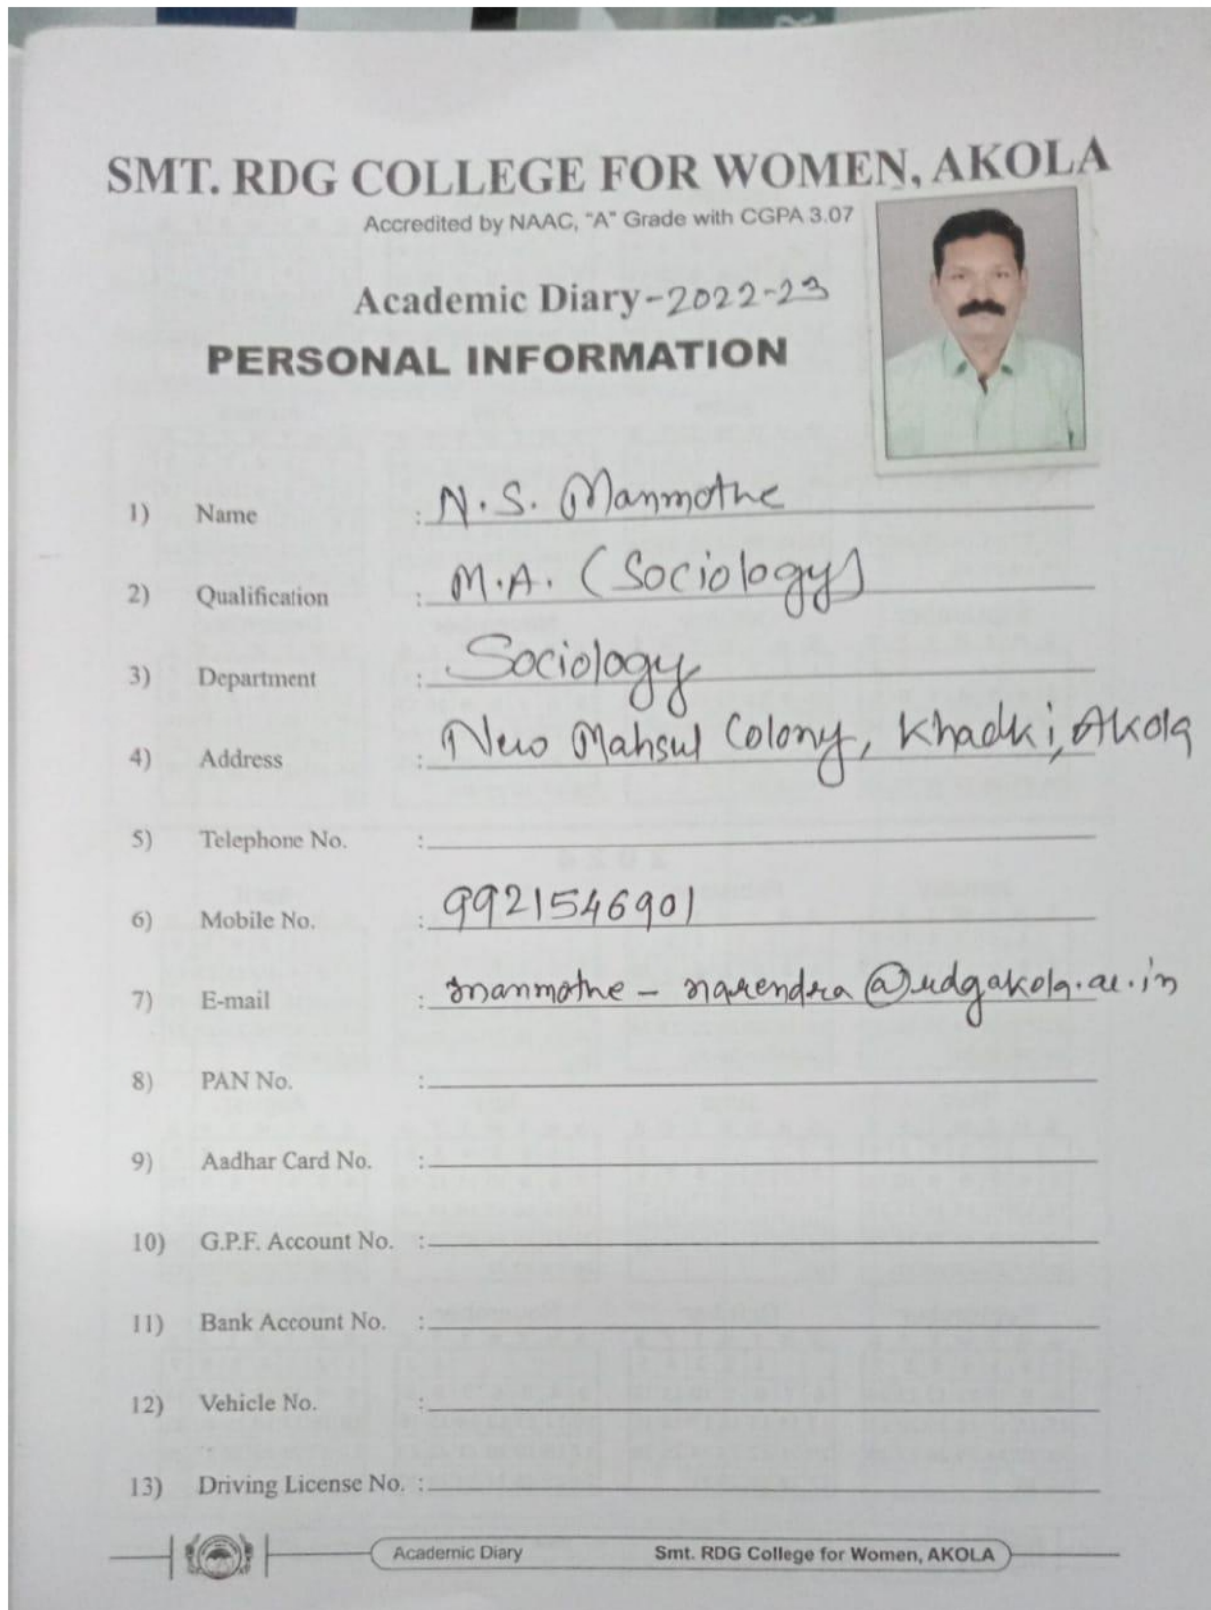 SMT. RDG COLLEGE FOR WOMEN, AKOLA
Accredited by NAAC, "A" Grade with CGPA 3.07
Academic Diary-2022-23
PERSONAL INFORMATION
1) Name : N.S. Manmothe
2) Qualification : M.A. (Sociology)
3) Department : Sociology
4) Address : New Mahsul Colony, Khadki, Akola
5) Telephone No. :
6) Mobile No. : 9921546901
7) E-mail : manmothe - narendra@rdgakola.ac.in
8) PAN No. :
9) Aadhar Card No. :
10) G.P.F. Account No. :
11) Bank Account No. :
12) Vehicle No. :
13) Driving License No. :
Academic Diary Smt. RDG College for Women, AKOLA